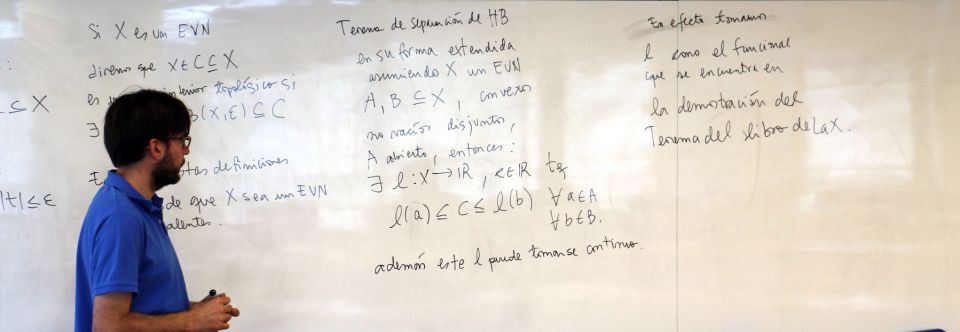 ⊆ X
|t| ≤ ε
Si X es un EVN
diremos que x ∈ C ⊆ X
es interior topológico si
∃ B(x, ε) ⊆ C
estas definiciones
de que X sea un EVN
Teorema de separación de HB
en su forma extendida
asumiendo X un EVN
A, B ⊆ X, convexos
no vacíos disjuntos,
A abierto, entonces:
∃ l: X → ℝ, c ∈ ℝ tq
l(a) ≤ c ≤ l(b) ∀ a ∈ A
∀ b ∈ B.
además este l puede tomarse continuo.
En efecto tomamos
l como el funcional
que se encuentra en
la demostración del
Teorema del libro de Lax.